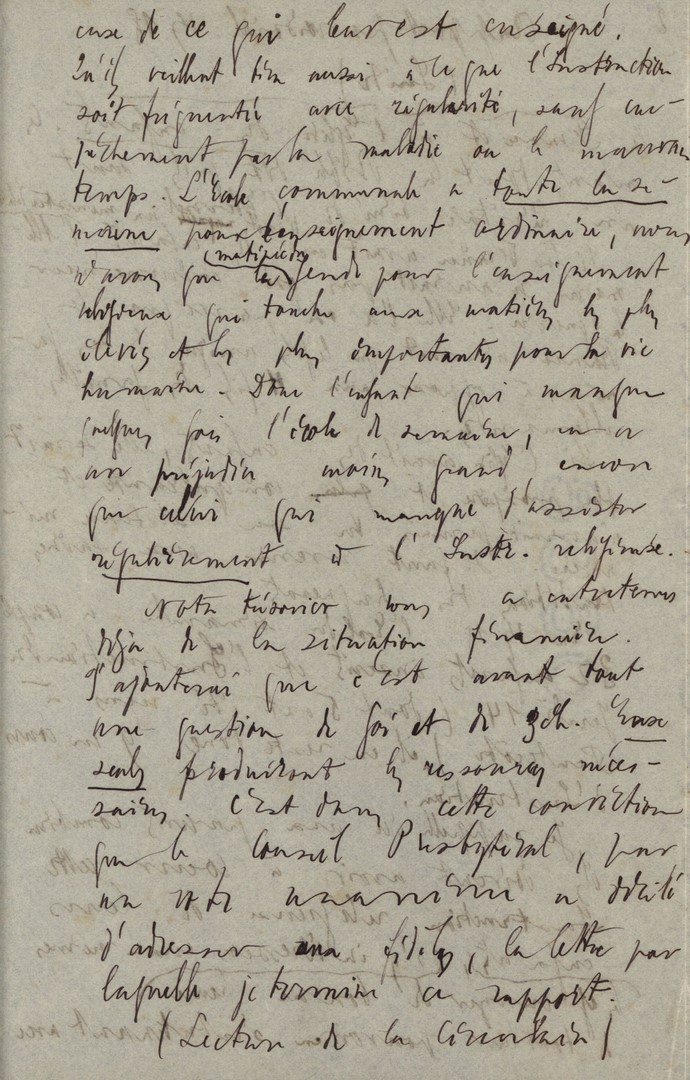 cuse de ce qui leur est enseigné.
Qu'ils veillent bien aussi à ce que l'Instruction
soit fréquentée avec régularité, sauf em-
pêchement par la maladie ou le mauvais
temps. L'Ecole communale a toute la se-
maine pour l'enseignement ordinaire, nous
n'avons que le (matinée du) jeudi pour l'enseignement
religieux qui touche aux matières les plus
élevées et les plus importantes pour la vie
humaine. Donc l'enfant qui manque
quelques fois l'école de semaine, en a
un préjudice moins grand, encore
que celui qui manque d'assister
régulièrement à l'Instr. religieuse.
Notre trésorier vous a entretenus
déja de la situation financière.
J'ajouterai que c'est avant tout
une question de foi et de zèle. Eux
seuls produiront les ressources néces-
saires. C'est dans cette conviction
que le Conseil Presbytéral, par
un vote unanime a décidé
d'adresser aux fidèles, la lettre par
laquelle je termine ce rapport.
(Lecture de la Circulaire)